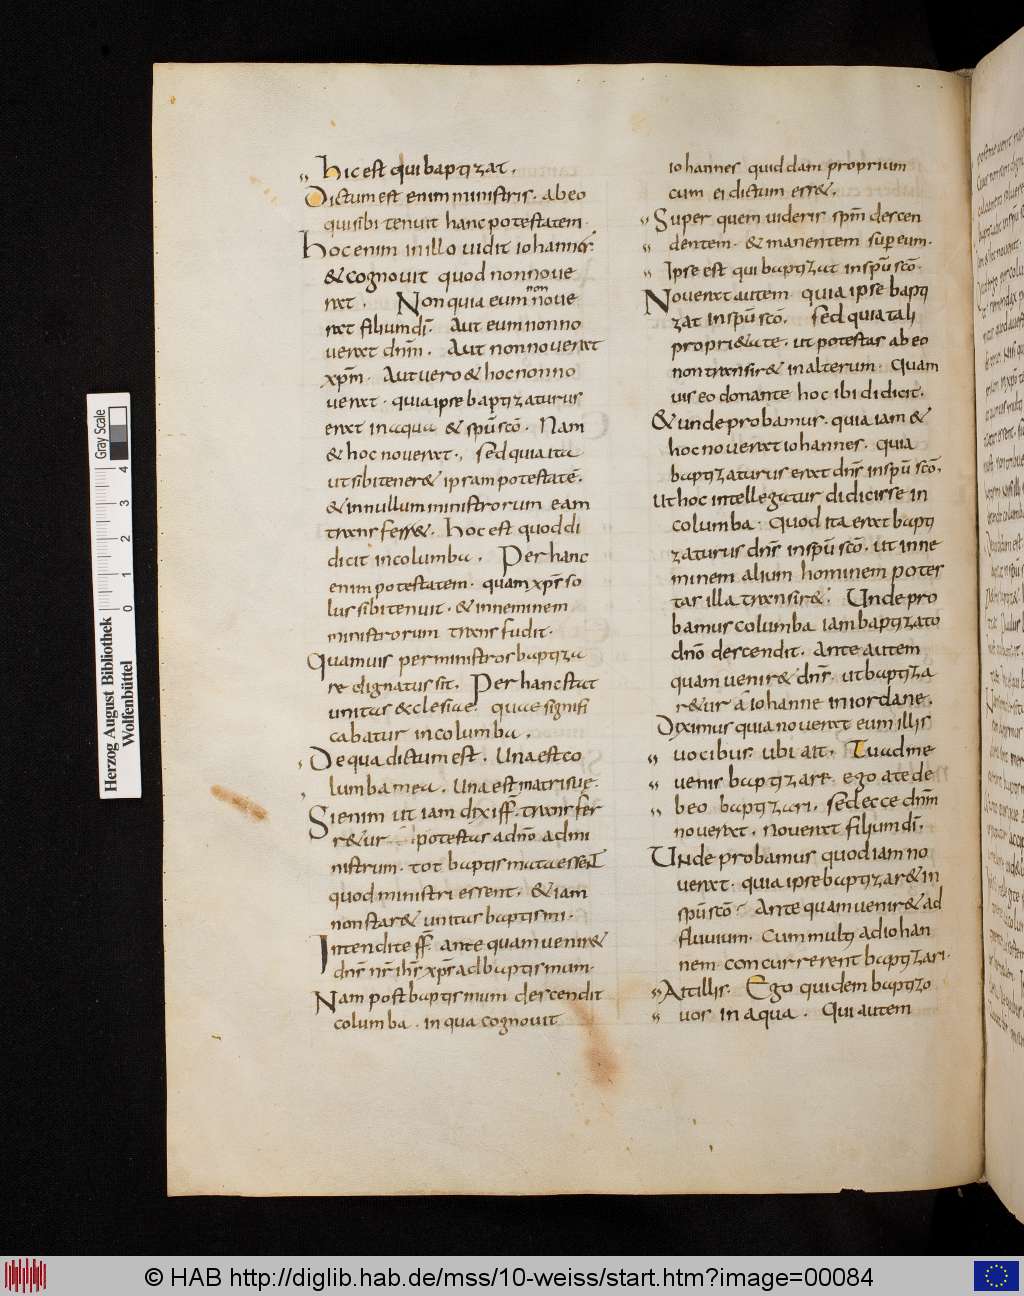 hic est qui baptizat.
Dictum est enim ministris. ab eo
qui sibi tenuit hanc potestatem.
Hoc enim in illo uidit iohannes.
& cognouit quod non noue
rat. Non quia eum non noue
rat filium dī. Aut eum non no
uerat dn̄m. Aut non nouerat
xp̄m. Aut uero & hoc non no
uerat. quia ipse baptizaturus
erat in aqua & spū scō. Nam
& hoc nouerat., sed quia ita
ut sibi tener& ipsam potestatē.
& in nullum ministrorum eam
transferr&. hoc est quod di
dicit in columba. Per hanc
enim potestatem. quam xp̄s so
lus sibi tenuit. & in neminem
ministrorum transfudit.
Quamuis per ministros baptiza
re dignatus sit. Per hanc stat
unitas ecclesiae. quae signifi
cabatur in columba.
De qua dictum est. Una est co
lumba mea. Una est matri suae.
Si enim ut iam dixi ff̄. transfer
r&ur potestas a dn̄o ad mi
nistrum. tot baptismata essent
quod ministri essent. & iam
non star& unitas baptismi.
Intendite ff̄. ante quam uenir&
dn̄s nr̄ ih̄s xp̄s ad baptismum.
Nam post baptismum descendit
columba. in qua cognouit
iohannes quiddam proprium
cum ei dictum ess&.
Super quem uideris spm̄ descen
dentem. & manentem super eum.
Ipse est qui baptizat in spū scō.
Nouerat autem quia ipse bapti
zat in spū scō. sed quia tali
propri&ate. ut potestas ab eo
non transir& in alterum. Quam
uis eo donante hoc ibi didicit.
& unde probamus. quia iam &
hoc nouerat iohannes. quia
baptizaturus erat dn̄s in spū scō.
Ut hoc intellegatur didicisse in
columba. quod ita erat bapti
zaturus dn̄s in spū scō. ut in ne
minem alium hominem potes
tas illa transir&. Unde pro
bamus columba iam baptizato
dn̄o descendit. Ante autem
quam uenir& dn̄s. ut baptiza
r&ur a iohanne in iordane.
Diximus quia nouerat eum illis
uocibus. ubi ait. Tu ad me
uenis baptizari. ego a te de
beo baptizari. sed ecce dn̄m
nouerat. nouerat filium dī.
Unde probamus quod iam no
uerat. quia ipse baptizar& in
spū scō. Ante quam uenir& ad
fluuium. Cum multi ad iohan
nem concurrerent baptizari.
Ait illis. Ego quidem baptizo
uos in aqua. Qui autem
Herzog August Bibliothek
Wolfenbüttel
Gray Scale
0 1 2 3 4
© HAB http://diglib.hab.de/mss/10-weiss/start.htm?image=00084